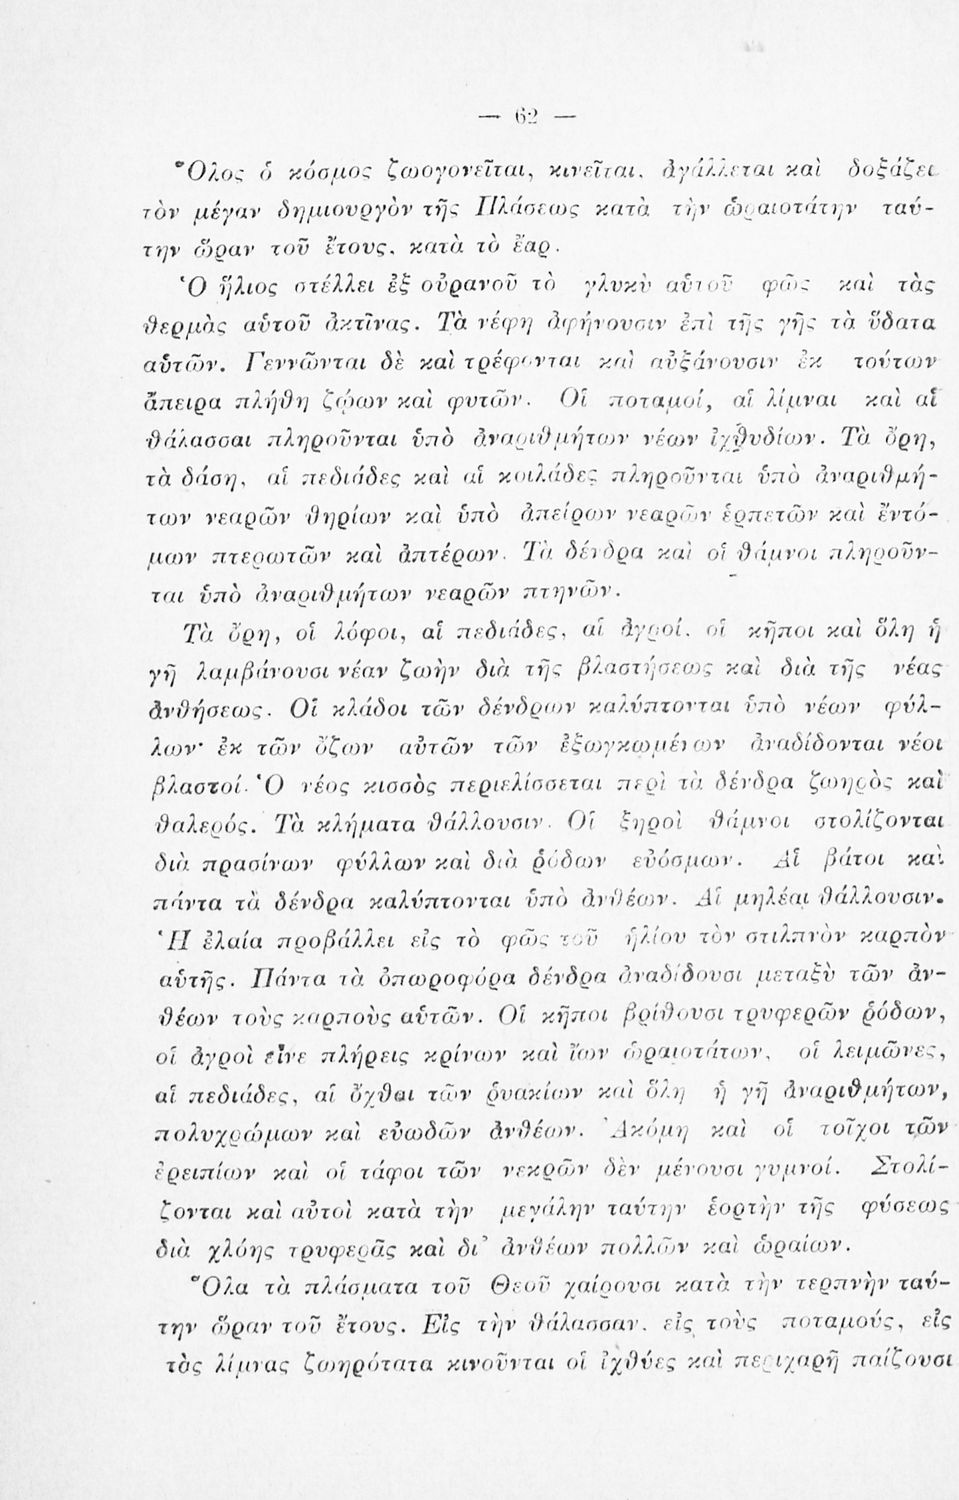 — 62 —
Ὅλος ὁ κόσμος ζωογονεῖται, κινεῖται, ἀγάλλεται καὶ δοξάζει
τὸν μέγαν δημιουργὸν τῆς Πλάσεως κατὰ τὴν ὡραιοτάτην ταύ-
την ὥραν τοῦ ἔτους, κατὰ τὸ ἔαρ.
Ὁ ἥλιος στέλλει ἐξ οὐρανοῦ τὸ γλυκὺ αὐτοῦ φῶς καὶ τὰς
θερμὰς αὐτοῦ ἀκτῖνας. Τὰ νέφη ἀφήνουσιν ἐπὶ τῆς γῆς τὰ ὕδατα
αὐτῶν. Γεννῶνται δὲ καὶ τρέφονται καὶ αὐξάνουσιν ἐκ τούτων
ἄπειρα πλήθη ζῴων καὶ φυτῶν. Οἱ ποταμοί, αἱ λίμναι καὶ αἱ
θάλασσαι πληροῦνται ὑπὸ ἀναριθμήτων νέων ἰχθυδίων. Τὰ ὄρη,
τὰ δάση, αἱ πεδιάδες καὶ αἱ κοιλάδες πληροῦνται ὑπὸ ἀναριθμή-
των νεαρῶν θηρίων καὶ ὑπὸ ἀπείρων νεαρῶν ἑρπετῶν καὶ ἐντό-
μων πτερωτῶν καὶ ἀπτέρων. Τὰ δένδρα καὶ οἱ θάμνοι πληροῦν-
ται ὑπὸ ἀναριθμήτων νεαρῶν πτηνῶν.
Τὰ ὄρη, οἱ λόφοι, αἱ πεδιάδες, αἱ ἀγροί, οἱ κῆποι καὶ ὅλη ἡ
γῆ λαμβάνουσι νέαν ζωὴν διὰ τῆς βλαστήσεως καὶ διὰ τῆς νέας
ἀνθήσεως. Οἱ κλάδοι τῶν δένδρων καλύπτονται ὑπὸ νέων φύλ-
λων· ἐκ τῶν ὄζων αὐτῶν τῶν ἐξωγκωμένων ἀναδίδονται νέοι
βλαστοί. Ὁ νέος κισσὸς περιελίσσεται περὶ τὰ δένδρα ζωηρὸς καὶ
θαλερός. Τὰ κλήματα θάλλουσιν. Οἱ ξηροὶ θάμνοι στολίζονται
διὰ πρασίνων φύλλων καὶ διὰ ῥόδων εὐόσμων. Αἱ βάτοι καὶ
πάντα τὰ δένδρα καλύπτονται ὑπὸ ἀνθέων. Αἱ μηλέαι θάλλουσιν.
Ἡ ἐλαία προβάλλει εἰς τὸ φῶς τοῦ ἡλίου τὸν στιλπνὸν καρπὸν
αὑτῆς. Πάντα τὰ ὀπωροφόρα δένδρα ἀναδίδουσι μεταξὺ τῶν ἀν-
θέων τοὺς καρποὺς αὑτῶν. Οἱ κῆποι βρίθουσι τρυφερῶν ῥόδων,
οἱ ἀγροὶ εἶνε πλήρεις κρίνων καὶ ἴων ὡραιοτάτων, οἱ λειμῶνες,
αἱ πεδιάδες, αἱ ὄχθαι τῶν ῥυακίων καὶ ὅλη ἡ γῆ ἀναριθμήτων,
πολυχρώμων καὶ εὐωδῶν ἀνθέων. Ἀκόμη καὶ οἱ τοῖχοι τῶν
ἐρειπίων καὶ οἱ τάφοι τῶν νεκρῶν δὲν μένουσι γυμνοί. Στολί-
ζονται καὶ αὐτοὶ κατὰ τὴν μεγάλην ταύτην ἑορτὴν τῆς φύσεως
διὰ χλόης τρυφερᾶς καὶ δι᾽ ἀνθέων πολλῶν καὶ ὡραίων.
Ὅλα τὰ πλάσματα τοῦ Θεοῦ χαίρουσι κατὰ τὴν τερπνὴν ταύ-
την ὥραν τοῦ ἔτους. Εἰς τὴν θάλασσαν, εἰς τοὺς ποταμούς, εἰς
τὰς λίμνας ζωηρότατα κινοῦνται οἱ ἰχθύες καὶ περιχαρῆ παίζουσι